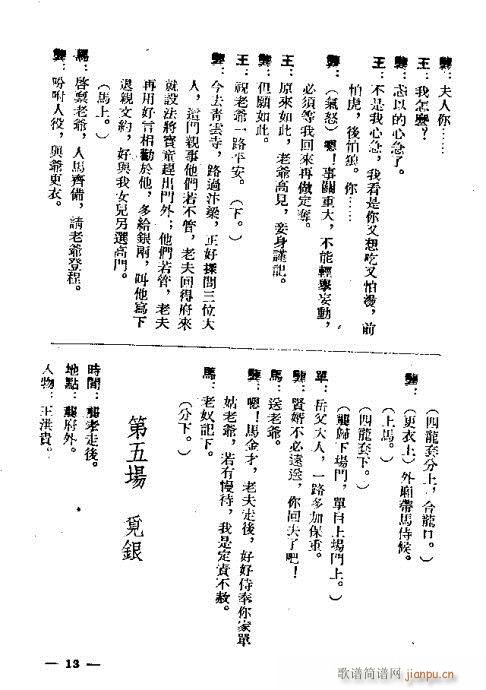 龔：夫人你……
王：我怎麽？
龔：忒以的心急了。
王：不是我心急，我看是你又想吃又怕燙，前
怕虎，後怕狼。你……
龔：（氣怒）嗯！事關重大，不能輕舉妄動，
必須等我回來再做定奪。
王：原來如此，老爺高見，妾身謹記。
龔：但願如此。
王：祝老爺一路平安。（下。）
龔：今去青雲寺，路過汴梁，正好探問三位大
人，這門親事他們若不管，老夫回得府來
就設法將寳童趕出門外；他們若管，老夫
再用好言相勸於他，多給銀兩，叫他寫下
退親文約，好與我女兒另選高門。
（馬上。）
馬：啓禀老爺，人馬齊備，請老爺登程。
龔：吩咐人役，與爺更衣。
（四龍套分上，合龍口。）
龔：（更衣上）外廂帶馬侍候。
（上馬。）
（四龍套下。）
（龔歸下場門，單自上場門上。）
單：岳父大人，一路多加保重。
龔：賢婿不必遠送，你回去了吧！
馬：送老爺。
龔：嗯！馬金才，老夫走後，好好侍奉你家單
姑老爺，若有慢待，我是定責不赦。
馬：老奴記下。
（分下。）
第五場　覓銀
時間：龔老走後。
地點：龔府外。
人物：王洪貴。
— 13 —
歌谱简谱网
www.jianpu.cn